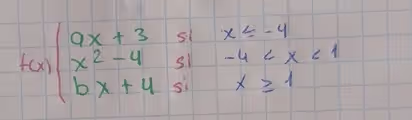 ax + 3 si x ≤ -4
f(x) x² - 4 si -4 < x < 1
bx + 4 si x ≥ 1